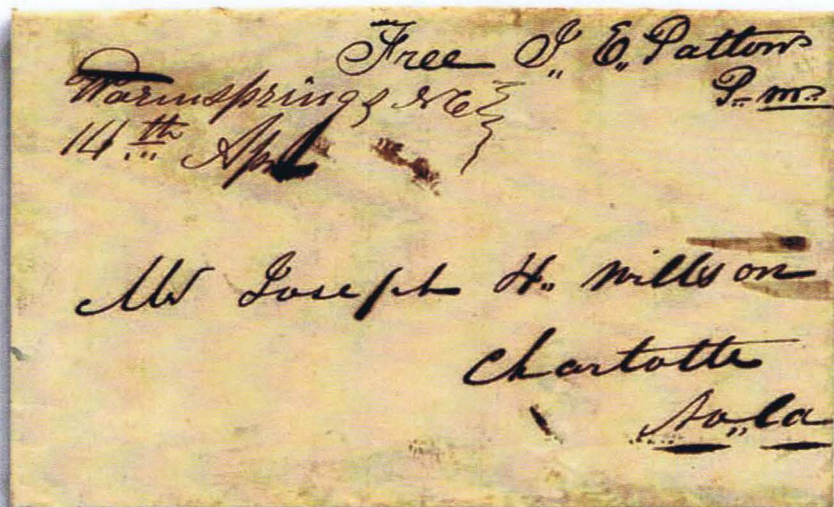 Free J. E. Patton
P. m.
Warmsprings NC
14th Apr
Mr Joseph H. Willson
Charlotte
No. Ca